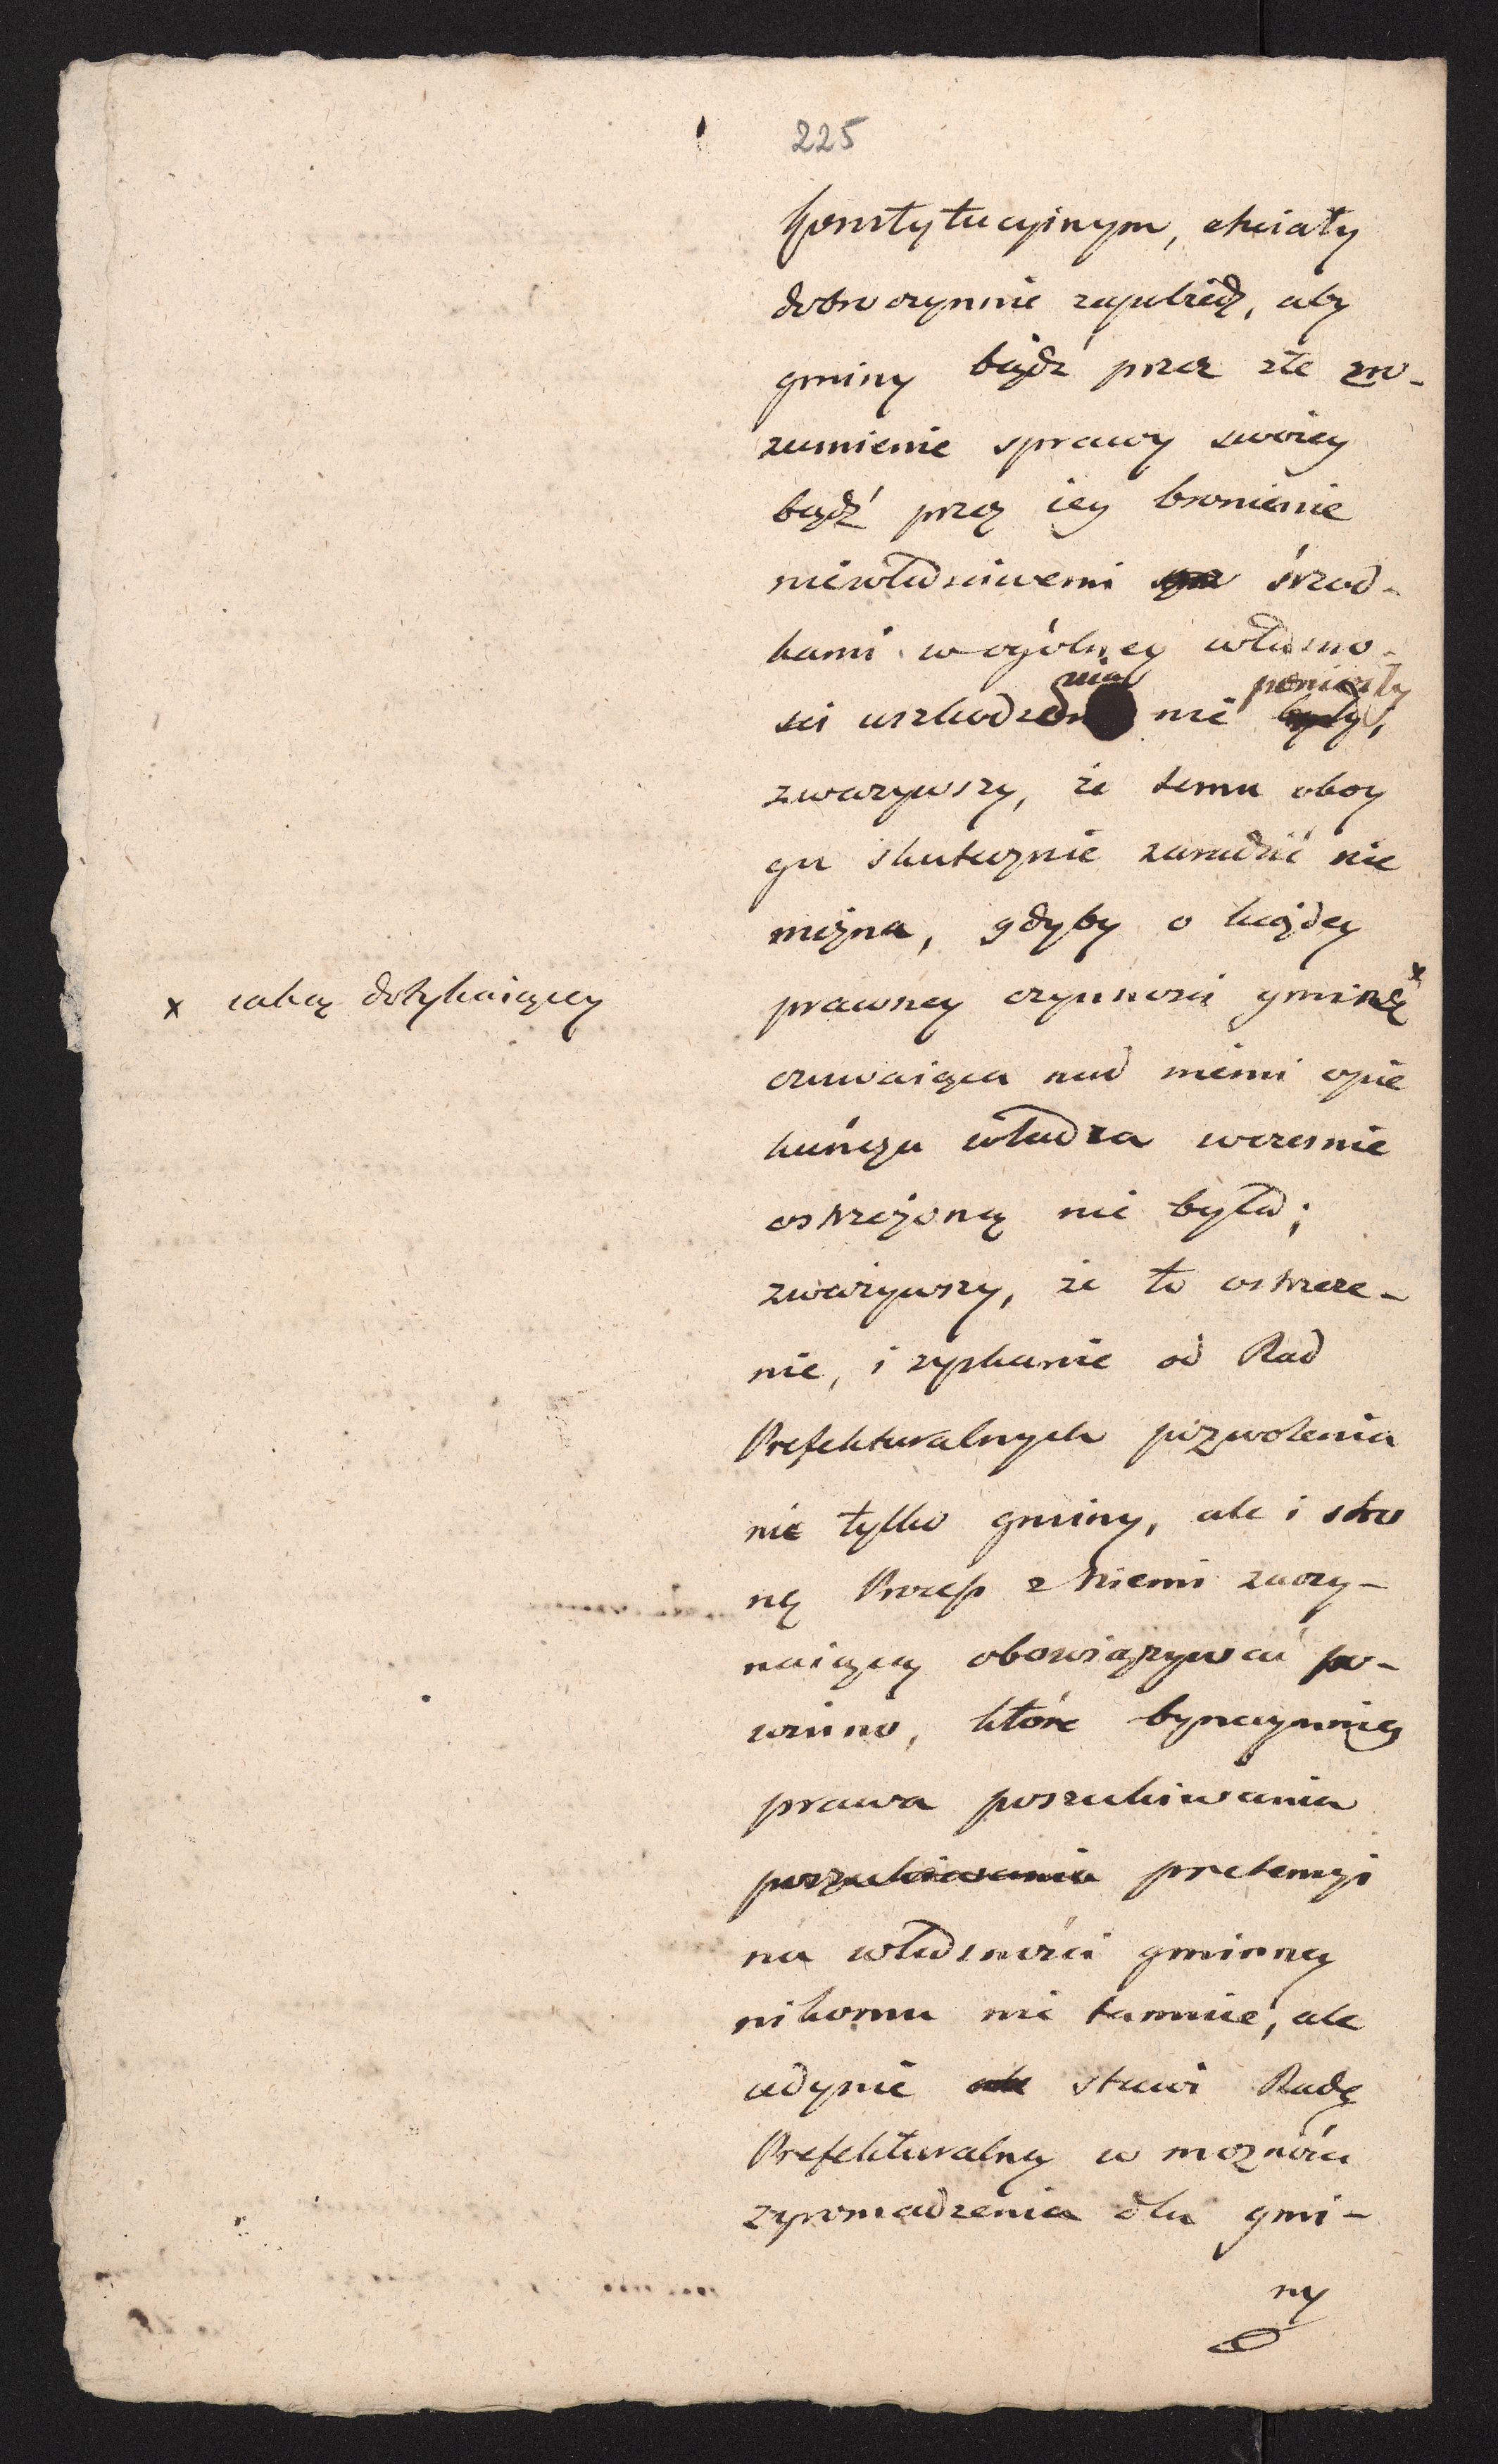 225
konstytucyinym, chciały
dobroczynnie zapobiedz, aby
gminy bądź przez złe zro-
zumienie sprawy swoiey
bądź przez iey bronienie
niewłaściwemi śrzod-
kami w ogólney własno-
ści uszkodzenia nie poniosły,
zważywszy, że temu oboy
gu skutecznie zaradzić nie
można, gdyby o każdey
prawney czynności gminę x
x całą dotykaiącey
czuwaiąca nad niemi opie
kuńcza władza wcześnie
ostrzeżoną nie była;
zważywszy, że to ostrzeże-
nie, i zyskanie od Rad
Prefekturalnych pozwolenia
nie tylko gminy, ale i stro
nę Process z Niemi zaczy-
naiącą obowiązywać po-
winno, które bynaymniey
prawa poszukiwania
poszukiwania pretensyi
na własności gminney
nikomu nie tamuie, ale
iedynie ale stawi Radę
Prefekturalną w możności
zgromadzenia dla gmi-
ny